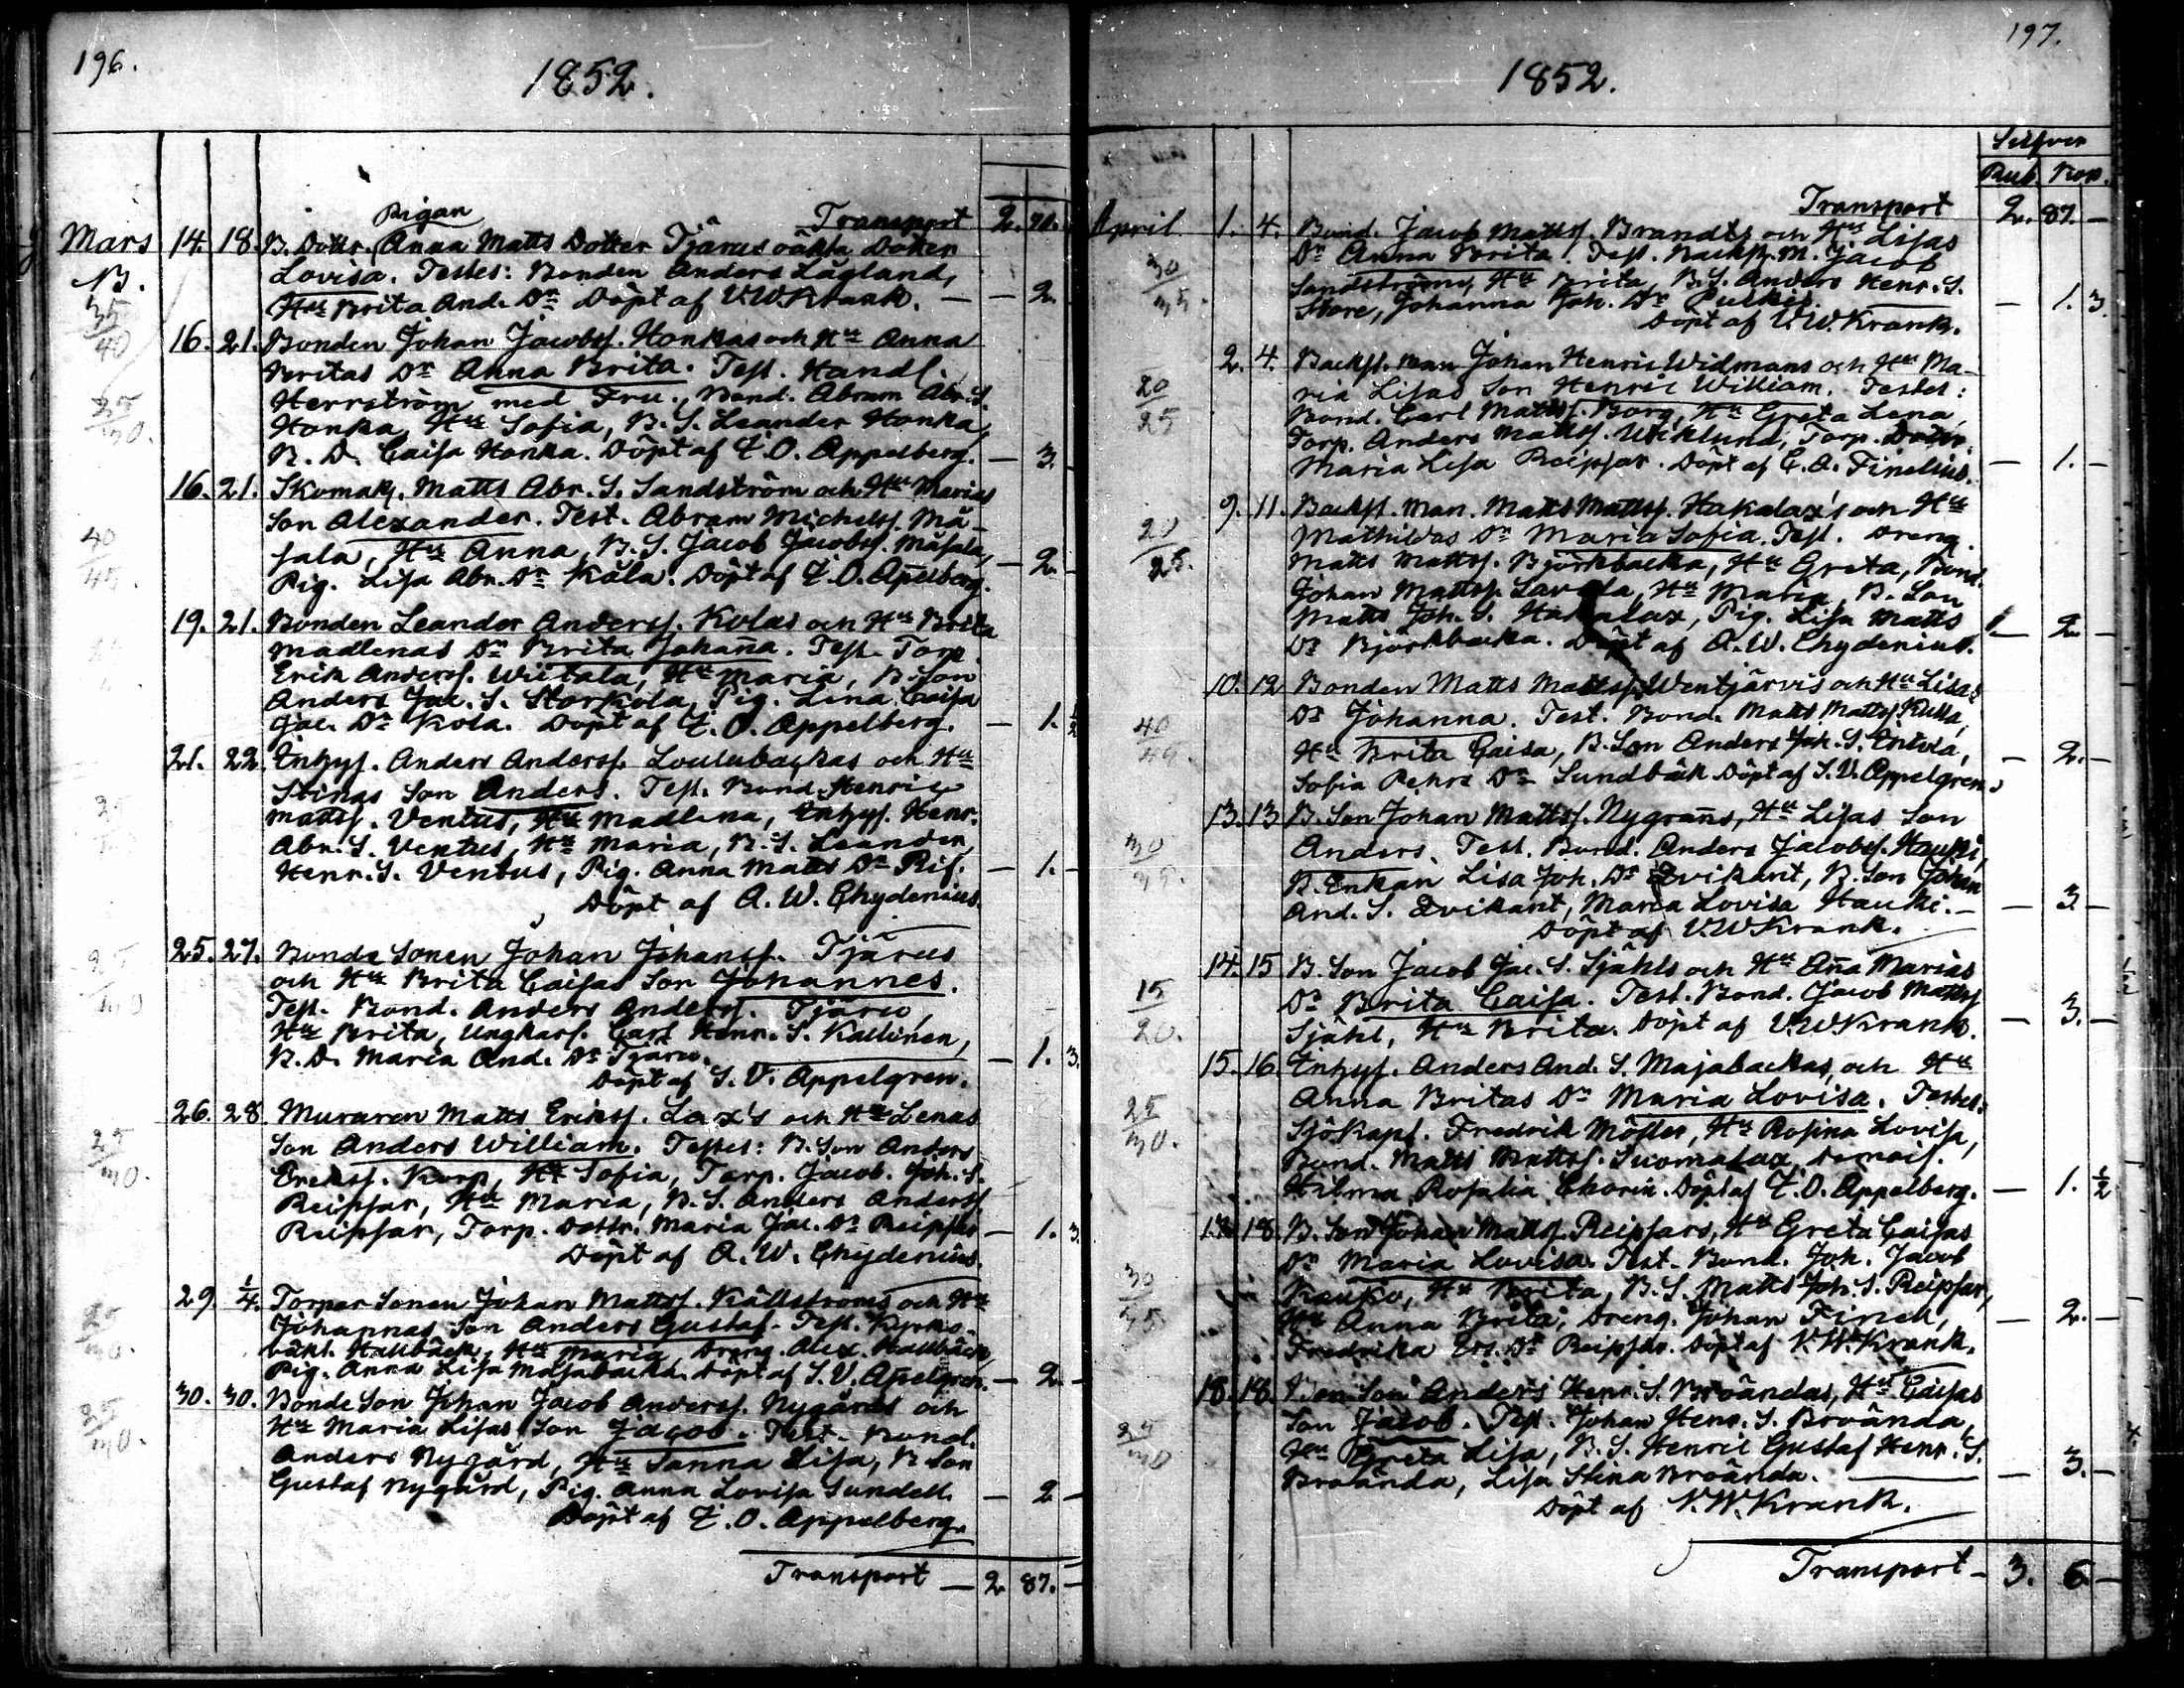 196.
1852.
Pigan
Transport 2. 70.
Mars 14. 18. B. Dottr. Anna Matts Dotter Tjärus oäkta Dotter
N. Lovisa. Testes: Bonden Anders Lågland,
35 Hu Brita And. Dr Döpt af V.W. Krank. — — 2.
40
16. 21. Bonden Johan Jacobss. Honkas och Hu Anna
Britas Dr Anna Brita. Test. Handl.
25 Herrström med Fru., Bond. Abram Abr. S.
30. Honka, Hu Sofia, B. S. Leander Honka,
B. D. Caisa Honka. Döpt af E. O. Appelberg. — 3.
16. 21. Skomak. Matts Abr. S. Sandström och Hu Marias
Son Alexander. Test. Abram Michelss. Må-
40 sala, Hu Anna, B. S. Jacob Jacobss. Måsala,
45. Pig. Lisa Abr. Dr Kåla. Döpt af E. O. Apelberg. — 2. —
19. 21. Bonden Leander Anderss. Kolas och Hu Brita
Madlenas Dr Brita Johana. Test. Torp.
Erik Anderss. Wiitala, Hu Maria, B. Son
Anders Jac. S. Storkola, Pig. Lena Caisa
Jac. Dr Kola. Döpt af E. O. Appelberg. — 1. ½
21. 22. Inhys. Anders Anderss. Loulubackas och Hu
Stinas Son Anders. Test. Bond. Henric
Mattss. Ventus, Hu Madlena, Inhys. Henr.
Abr. S. Ventus, Hu Maria, B. S. Leander
Henr. S. Ventus, Pig. Anna Matts Dr Rif. — 1. —
Döpt af A. W. Chydenius.
25. 27. Bonde Sonen Johan Johanss. Tjärus
25 och Hu Brita Caisas Son Johannes.
30 Test. Bond. Anders Anderss. Tjäru,
Hu Brita, Ungkarl. Carl Henr. S. Kallinen,
B. D. Maria And. Dr Tjäru. — 1. 3.
Döpt af S. V. Appelgren.
26. 28 Muraren Matts Erikss. Lax's och Hu Lenas
25 Son Anders William. Testes: B. Son Anders
30. Erekss. Korp, Hu Sofia, Torp. Jacob. Joh. S.
Reipsar, Hu Maria, B. S. Anders Anderss.
Reipsar, Torp. Dottr. Maria Jac. Dr Reipsar — 1. 3.
Döpt af A. W. Chydenius.
29. 1/4. Torpar Sonen Johan Mattss. Källströms och Hu
25 Johannas Son Anders Gustaf. Test. Kyrko-
30. väkt. Hallbäck, Hu Maria, Dreng. Alex. Hallbäck,
Pig. Anna Lisa Majabacka. Döpt af S. V. Apelgren. — 2. —
30. 30. Bonde Son Johan Jacob Anderss. Nygårds och
25 Hu Maria Lisas Son Jacob. Test. Bond.
30. Anders Nygård, Hu Sanna Lisa, B. Son
Gustaf Nygård, Pig. Anna Lovisa Sundell. — 2 —
Döpt af E. O. Appelberg.
Transport — 2. 87. —
197.
1852.
Silfver
Rub. Kop.
Transport 2. 87. —
April 1. 4. Bond. Jacob Mattss. Brandts och Hu Lisas
30 Dr Anna Brita. Test. Backst. M. Jacob
35. Sandström, Hu Brita, B. S. Anders Henr. S.
Store, Johanna Joh. Dr Pulkis. — 1. 3.
Döpt af V. W. Krank.
2. 4. Backst. man Johan Henric Widmans och Hu Ma-
20 ria Lisas Son Henric William. Testes:
25 Bond. Carl Mattss. Borg, Hu Greta Lena,
Torp. Anders Mattss. Wicklund, Torp. Dottr.
Maria Lisa Reipsar. Döpt af C. A. Finelius. — 1. —
9. 11. Backst. Man. Matts Mattss. Hakalax's och Hu
20 Mathildas Dr Maria Sofia. Test. Dreng.
25. Matts Mattss. Björkbacka, Hu Greta, Bond.
Johan Mattss. Savela, Hu Maria, B. Son
Matts Joh. S. Hakalax, Pig. Lisa Matts
Dr Björkbacka. Döpt af A. W. Chydenius. — 2. —
10. 12 Bonden Matts Mattss. Wentjärvis och Hu Lisas
40 Dr Johanna. Test. Bond. Matts Mattss. Kulla,
45. Hu Brita Caisa, B. Son Anders Joh. S. Entola,
Sofia Pehrs Dr Sundbäck. Döpt af S. V. Appelgren. — 2. —
13. 13 B. Son Johan Mattss. Nygrans, Hu Lisas Son
30 Anders. Test. Bond. Anders Jacobss. Hauki,
35. B. Enkan Lisa Joh. Dr Qvikant, B. Son Johan
And. S. Qvikant, Maria Lovisa Hauki. — — 3. —
Döpt af V. W Krank.
14. 15 B. Son Jacob Jac. S. Sjähls och Hu Ana Marias
15 Dr Brita Caisa. Test. Bond. Jacob Mattss.
20. Sjähl, Hu Brita. Döpt af V. W Krank. — 3. —
15. 16. Inhys. Anders And. S. Majabackas, och Hu
25 Anna Britas Dr Maria Lovisa. Testes:
30. Sjökapt. Fredrik Möller, Hu Rosina Lovisa,
Bond. Matts Mattss. Suomalax, Demois.
Hilma Rosalia Chorin. Döpt af E. O. Appelberg. — 1. ½
18. B. Son Johan Mattss. Reipsars, Hu Greta Caisas
30 Dr Maria Lovisa. Test. Bond. Joh. Jacob
35 Kauko, Hu Brita, B. S. Matts Joh. S. Reipsar,
Hu Anna Brita, Dreng. Johan Finell, — 2. —
Fredrika Ers. Dr Reipsar. Döpt af V. W. Krank.
18. 18. Bon. Son Anders Henr. S. Broändas, Hu Caisas
25 Son Jacob. Test. Johan Henr. S. Broända,
30 Hu Greta Lisa, B. S. Henric Gustaf Henr. S.
Broända, Lisa Stina Broända. — — 3. —
Döpt af V. W. Krank.
Transport — 3. 6. —